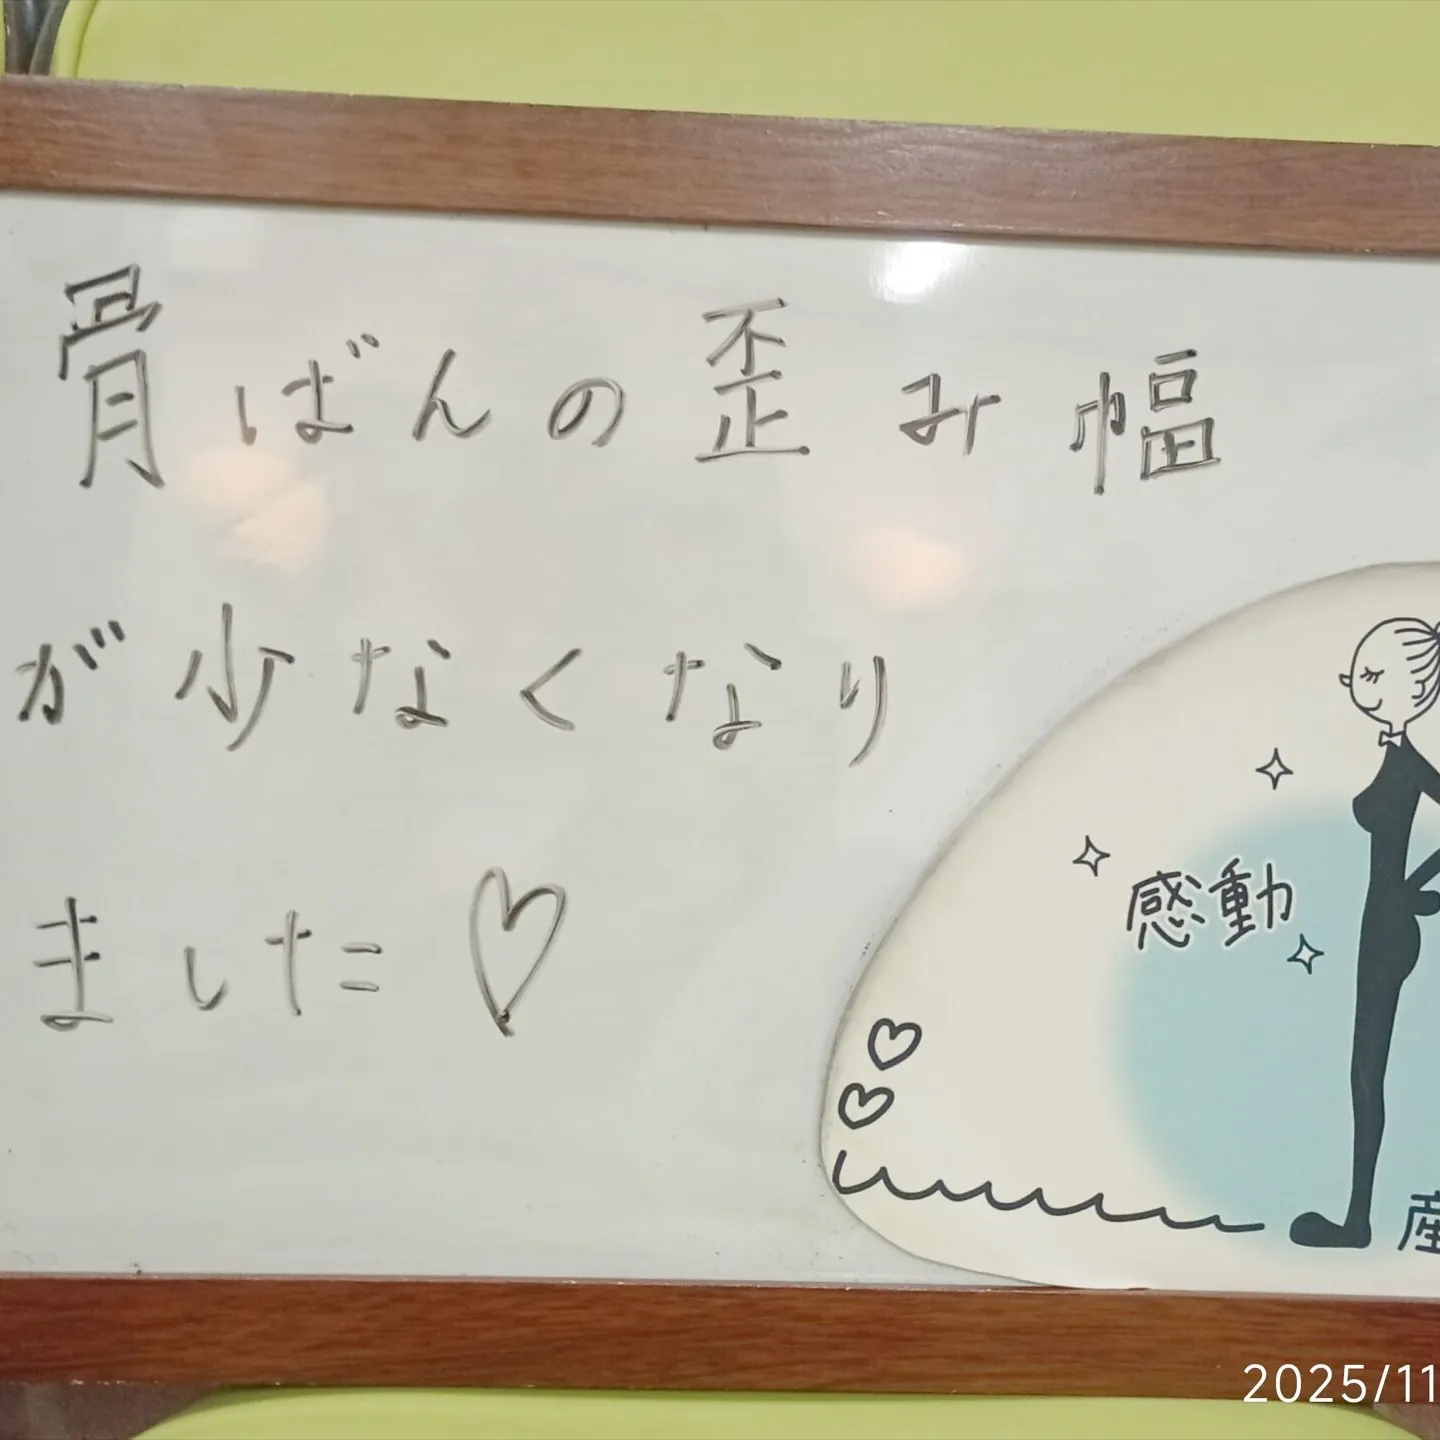 骨ばんの歪み幅
が少なくなり
ました♡
感動
産
2025/11